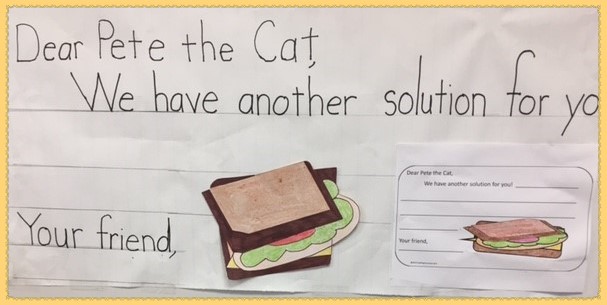 Dear Pete the Cat,
We have another solution for yo
Your friend,
Dear Pete the Cat,
We have another solution for you!
Your friend,